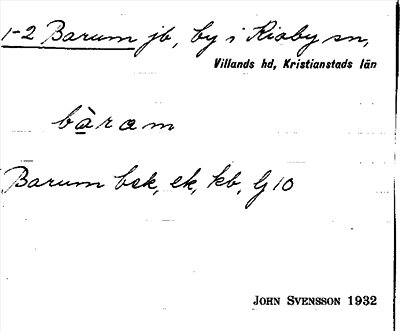 1-2 Barum jb, by i Kiaby sn,
Villands hd, Kristianstads län
bàram
Barum bek, ek, kb, Gj 10
JOHN SVENSSON 1932